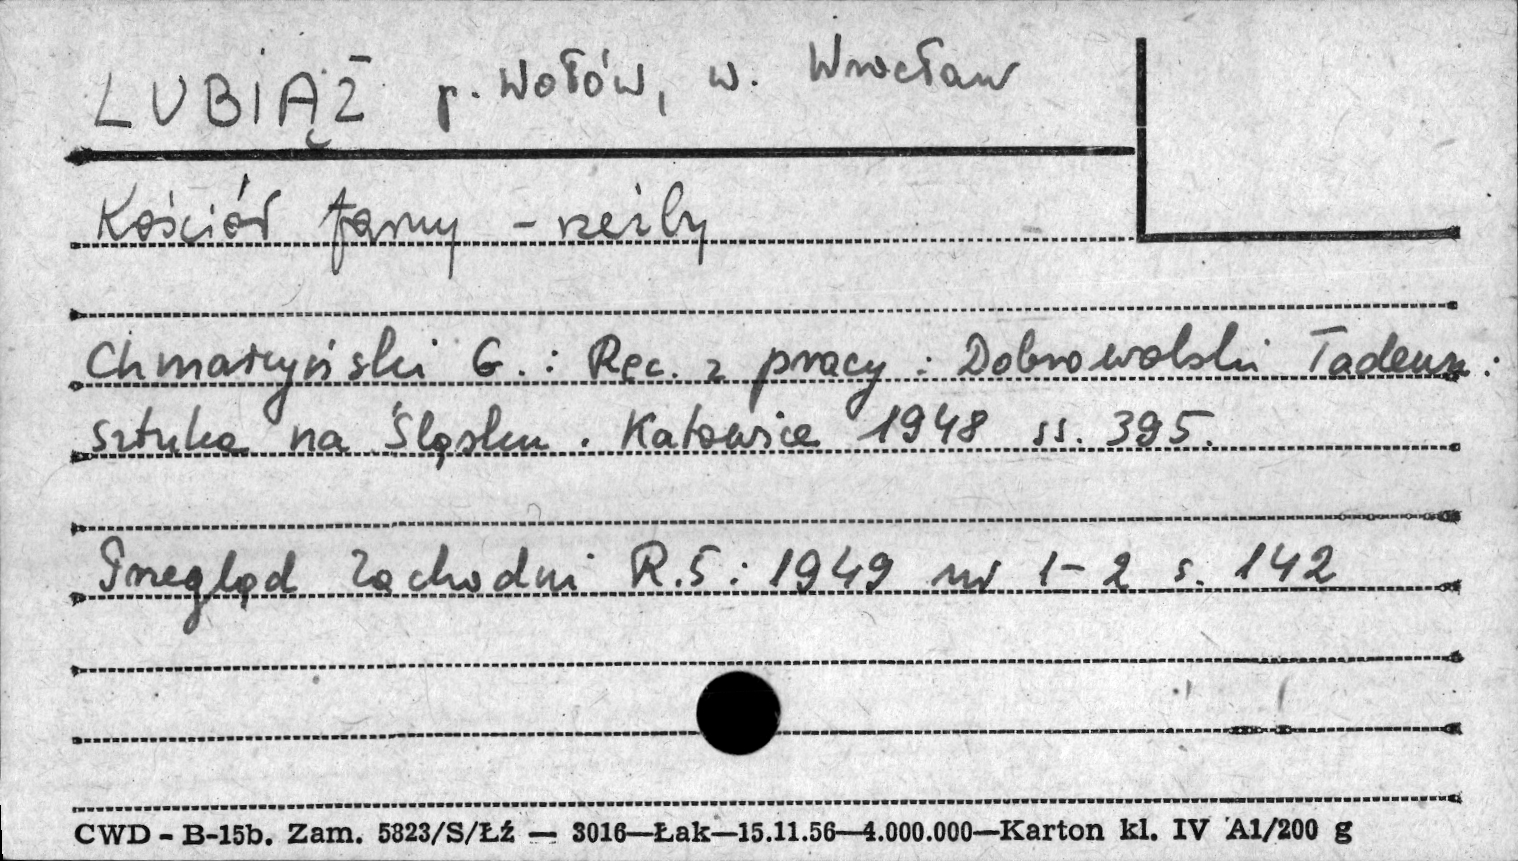 LUBIĄŻ p. Wołów, w. Wrocław
Kościół farny - rzeźby
Chmarzyński G.: Rec. z pracy: Dobrowolski Tadeusz:
sztuka na Śląsku. Katowice 1948 ss. 395.
Przegląd Zachodni R.5: 1949 nr 1-2 s. 142
CWD - B-15b. Zam. 5823/S/Łź — 3016—Łak—15.11.56—4.000.000—Karton kl. IV A1/200 g